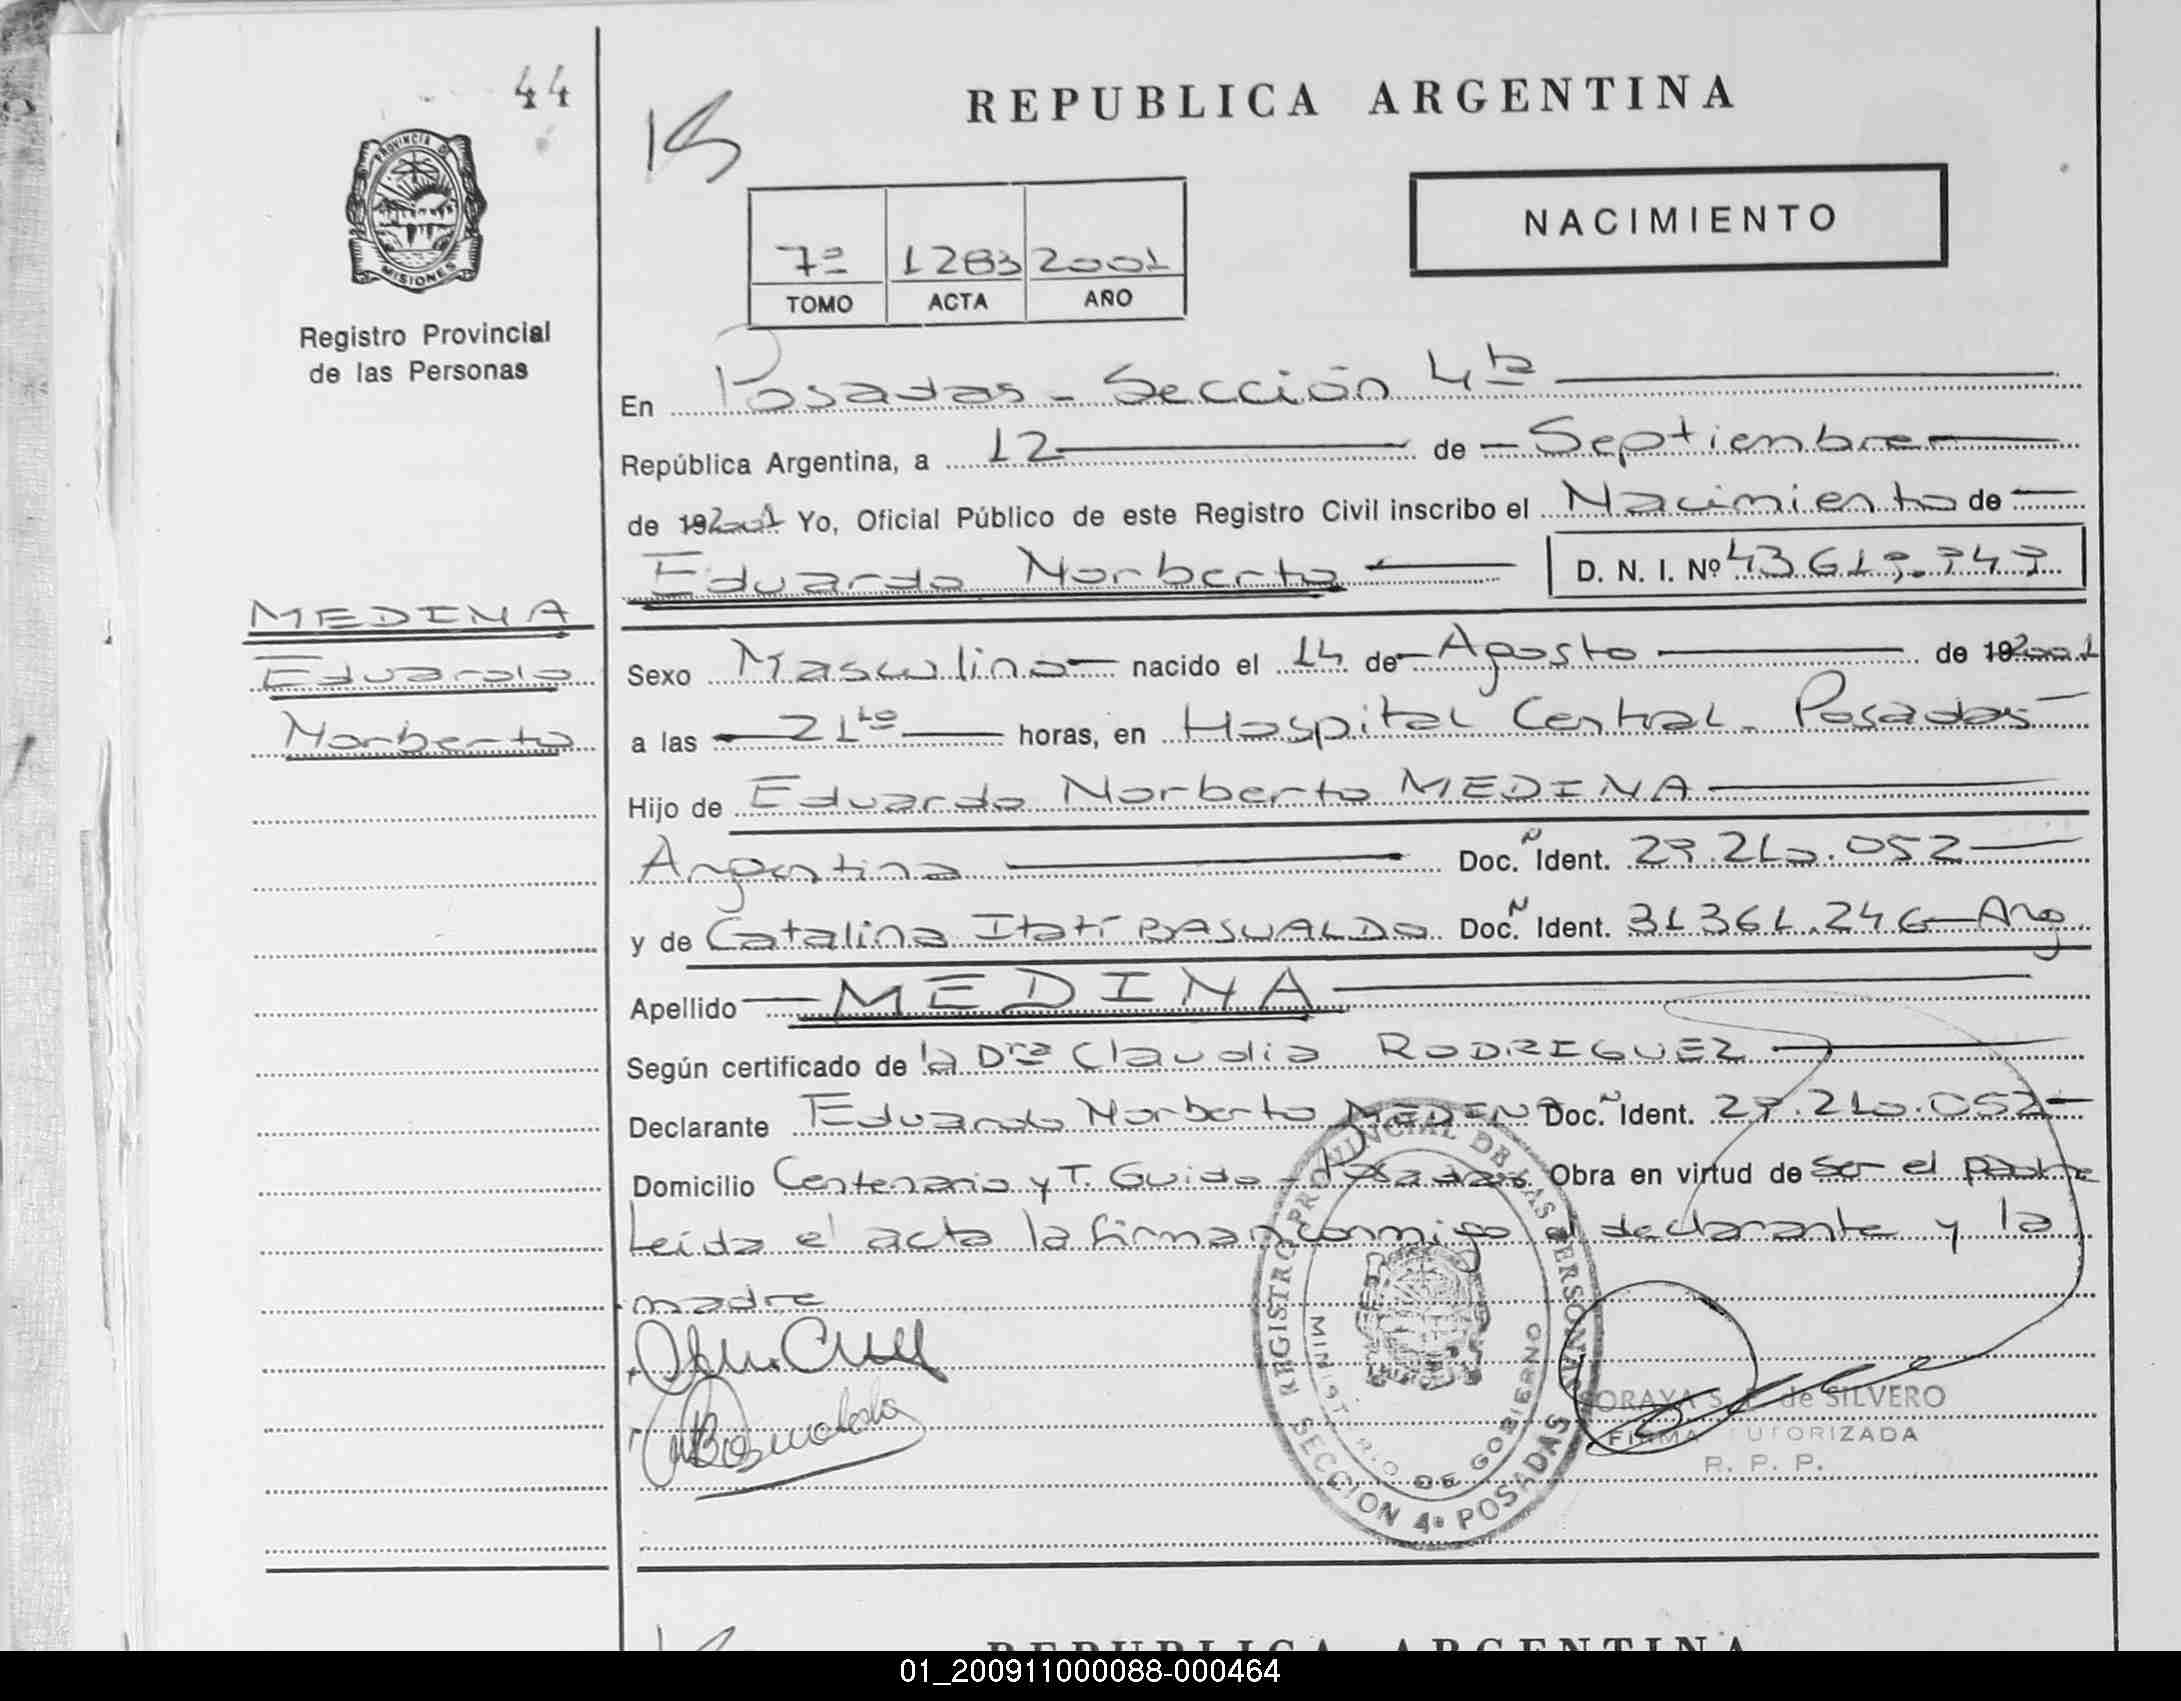 44
REPUBLICA ARGENTINA
NACIMIENTO
PROVINCIA DE
MISIONES
Registro Provincial
de las Personas
7º 1283 2001
TOMO ACTA AÑO
En Posadas - Sección 4ta
República Argentina, a 12 de Septiembre
de 192001 Yo, Oficial Público de este Registro Civil inscribo el Nacimiento de
Eduardo Norberto D. N. I. Nº
MEDINA
Eduardo
Norberto
Sexo Masculino nacido el 14 de Agosto de 192001
a las 21 horas, en Hospital Central - Posadas
Hijo de Eduardo Norberto MEDINA
Argentina Doc. Ident.
y de Catalina Itatí BASUALDO Doc. Ident. 31.361.246 Arg.
Apellido MEDINA
Según certificado de la Dra Claudia RODRIGUEZ
Declarante Eduardo Norberto MEDINA Doc. Ident.
Domicilio Centenario y T. Guido - Posadas Obra en virtud de ser el padre
Leída el acta la firman conmigo el declarante y la
madre
REGISTRO PROVINCIAL DE LAS PERSONAS
MINISTERIO DE GOBIERNO
SECCION 4ª POSADAS
SORAYA S. de SILVERO
FIRMA AUTORIZADA
R. P. P.
REPUBLICA ARGENTINA
01_200911000088-000464